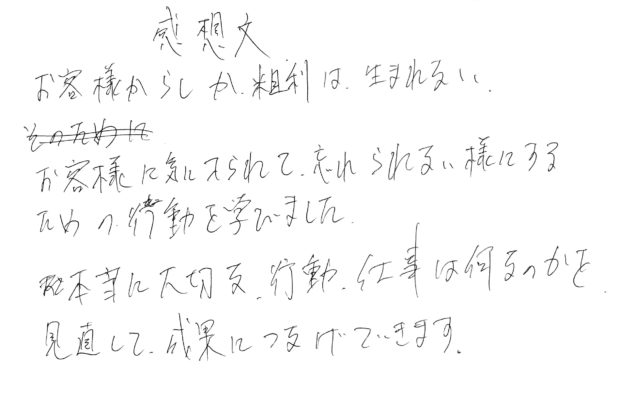 感想文
お客様からしか、粗利は、生まれない、
そのために
お客様に気に入られて、忘れられない様にする
ための行動を学びました。
本当に大切な、行動、仕事は何なのかを、
見直して、成果につなげていきます。